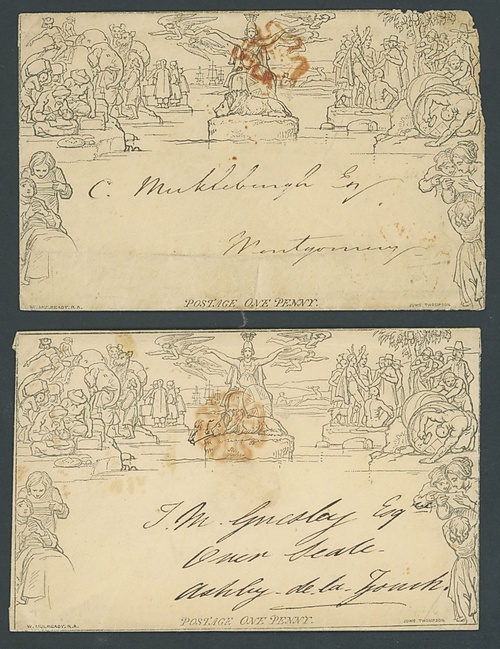 C. Mickleburgh Esq
Montgomery
W. MULREADY, R.A.
POSTAGE ONE PENNY.
JOHN THOMPSON
J. M. Gresley Esqr
Over Seale
Ashby-de-la-Zouch.
W. MULREADY, R.A.
POSTAGE ONE PENNY.
JOHN THOMPSON